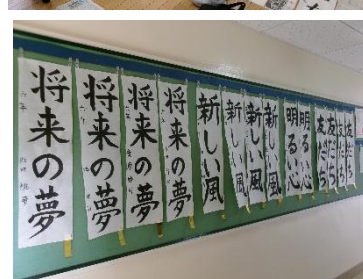 将来の夢
将来の夢
将来の夢
将来の夢
新しい風
新しい風
新しい風
新しい風
明る心
明る心
友だち
友だち
友だち
友だち